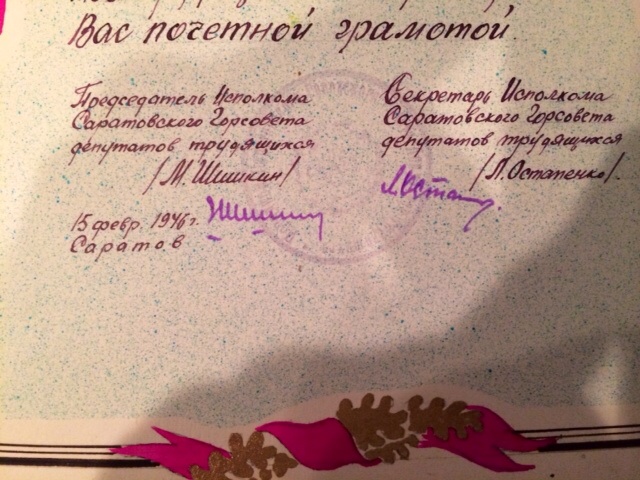 Вас почетной грамотой
Председатель Исполкома
Саратовского Горсовета
депутатов трудящихся
/М. Шишкин/
15 февр. 1946г.
Саратов
Секретарь Исполкома
Саратовского Горсовета
депутатов трудящихся
/Л. Остапенко/.